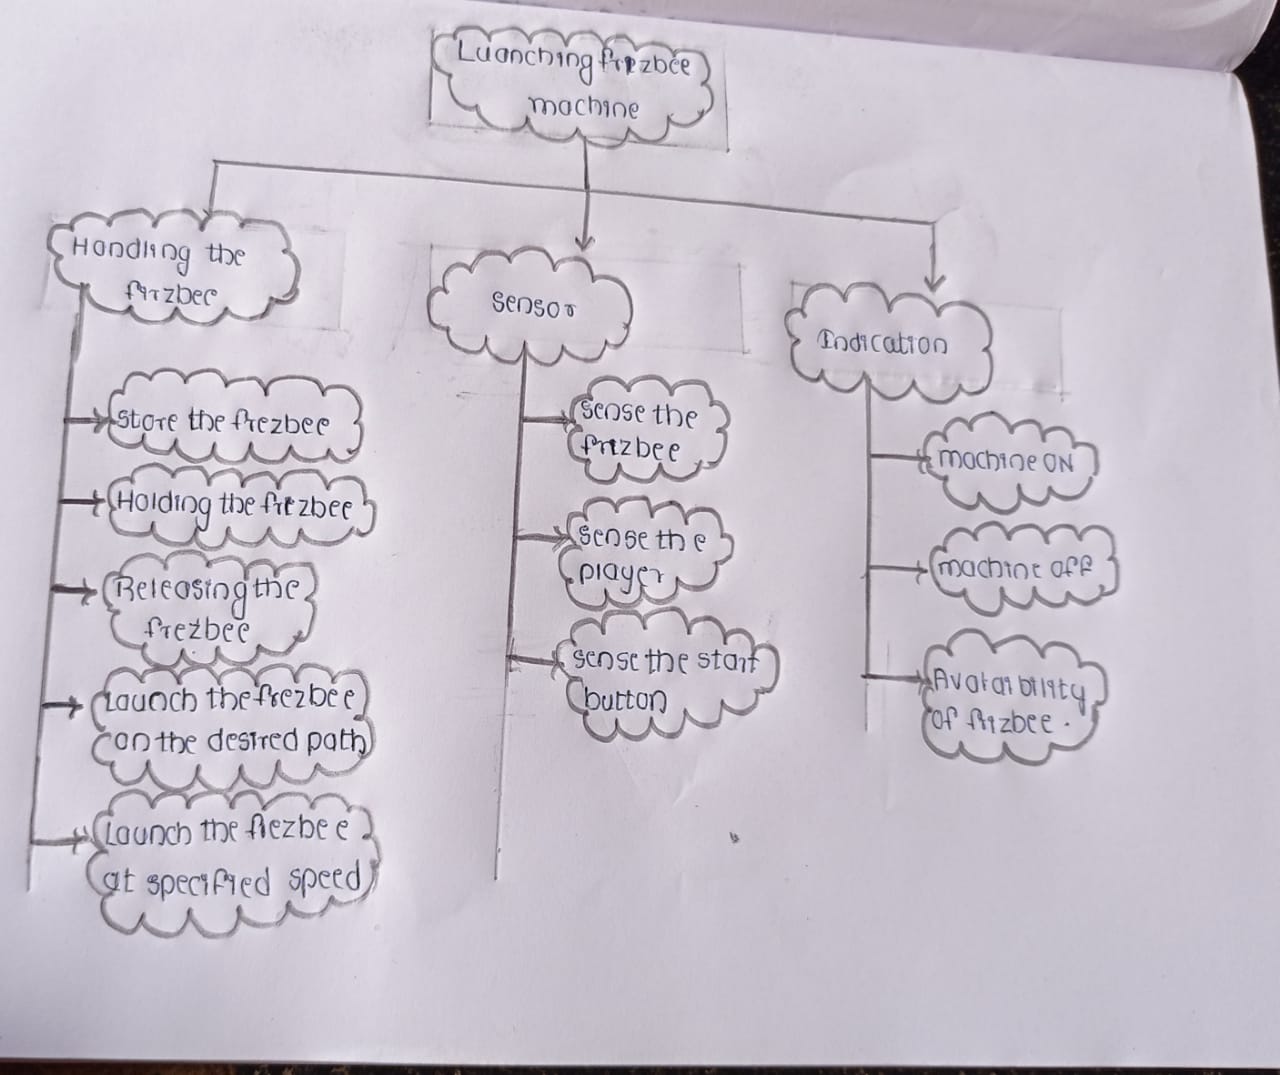 Luanching frezbee
machine
Handling the
firzbee
Store the frezbee
Holding the frezbee
Releasing the
frezbee
Launch the frezbee
on the desired path
Launch the frezbee
at specified speed
Sensor
Sense the
frizbee
Sense the
player
sense the start
button
Indication
machine ON
machine off
Avatar bility
of frizbee.